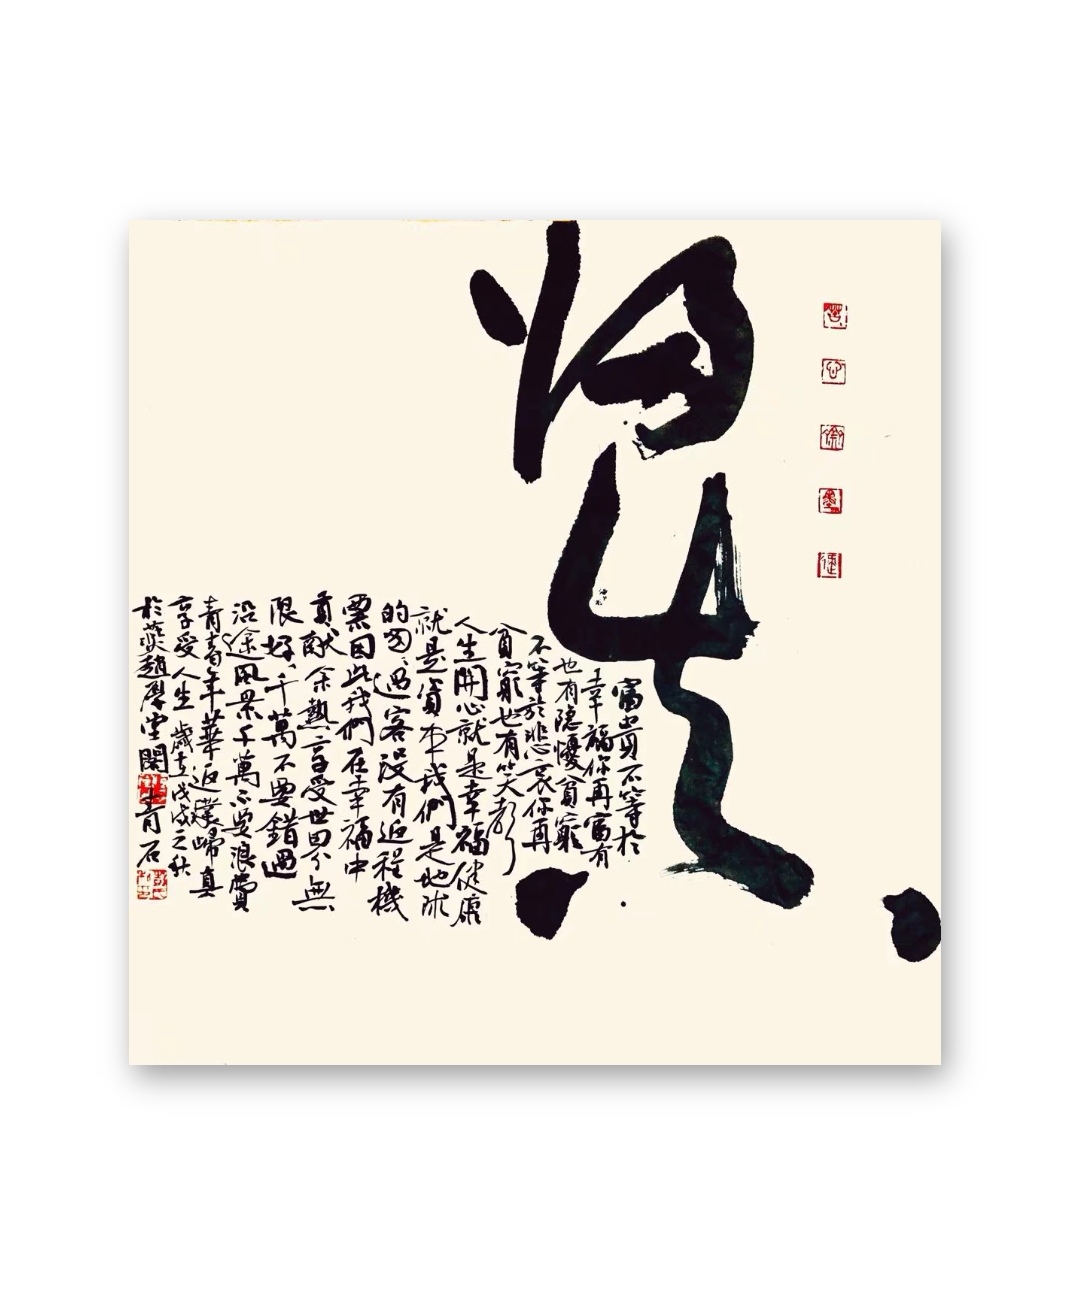 归真
富貴不等於
幸福你再富有
也有隐憂貧窮
不等於悲哀你再
貧窮也有笑聲
人生開心就是幸福健康
就是資本我們是地球
的匆匆過客没有返程機
票因此我們在幸福中
貢献余熱享受世界無
限好千萬不要錯過
沿途風景千萬不要浪費
青春年華返璞歸真
享受人生歲在戊戌之秋
於燕趙厚堂閣
青石